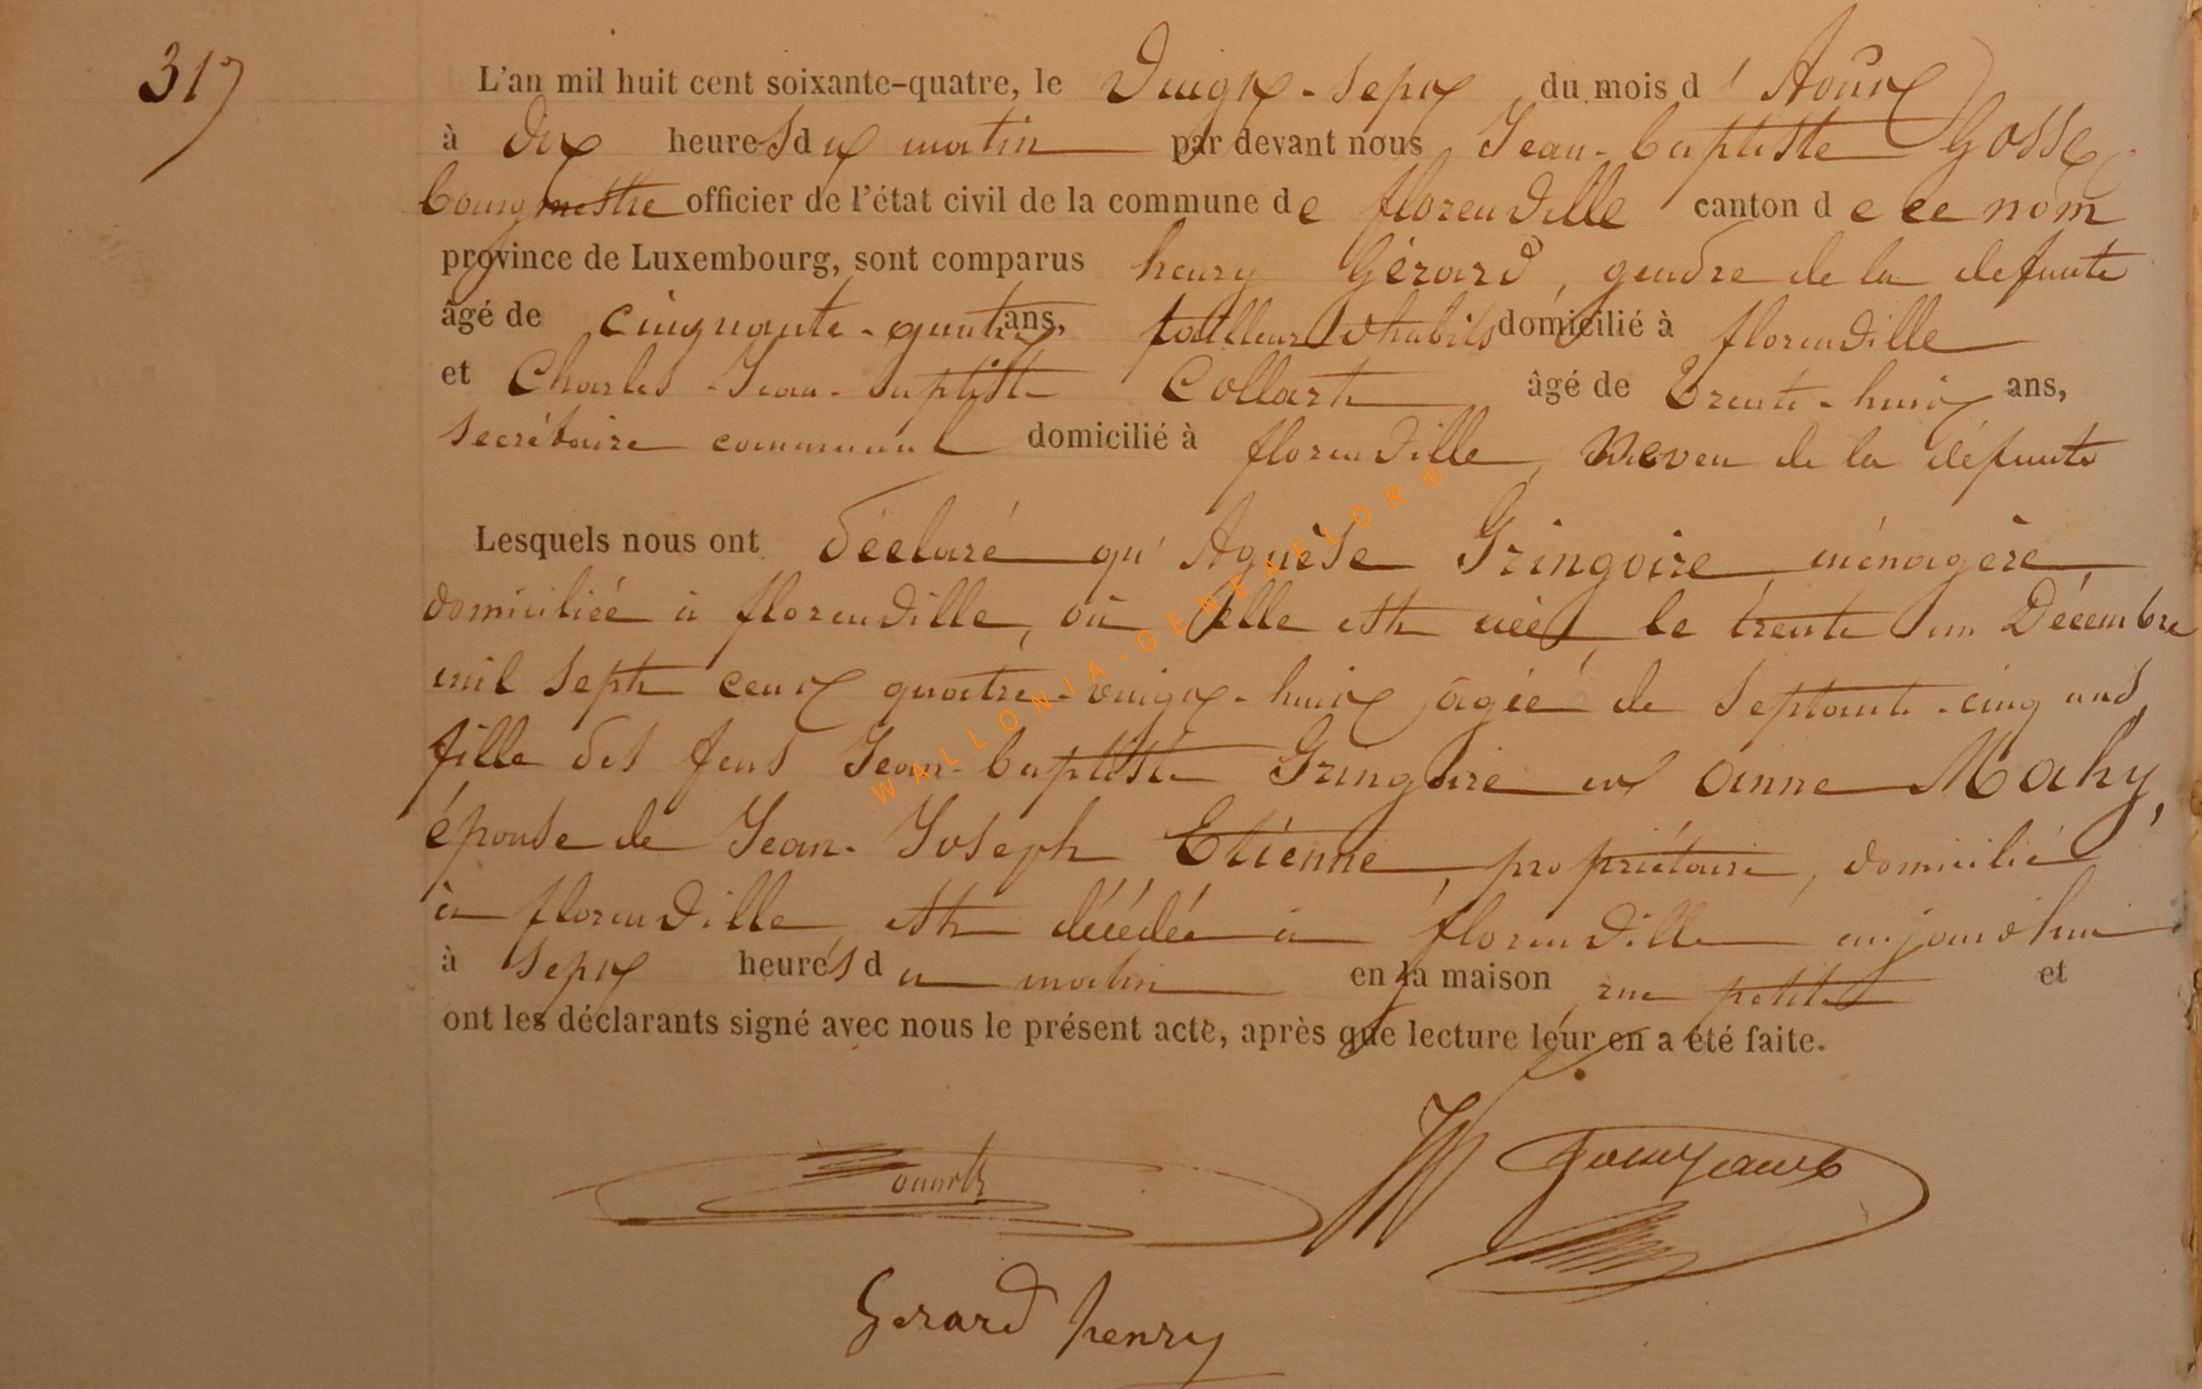 317
L'an mil huit cent soixante-quatre, le Vingt-sept du mois d'Août
à dix heures du matin par devant nous Jean-baptiste Gosse,
bourgmestre officier de l'état civil de la commune de florenville canton de ce nom
province de Luxembourg, sont comparus henry Gérard, gendre de la defunte
âgé de cinquante-quatre ans, tailleur d'habits domicilié à florenville
et Charles-Jean-baptiste Collart âgé de trente-huit ans,
secrétaire communal domicilié à florenville, Neveu de la défunte
Lesquels nous ont déclaré qu'Agnèse Gringoire, ménagère,
domiciliée à florenville, où elle est née, le trente un Décembre
mil sept cent quatre-vingt-huit, âgée de septante-cinq ans,
fille des feus Jean-baptiste Gringoire et anne Mahy,
épouse de Jean-Joseph Etienne, propriétaire, domicilié
à florenville est décédée à florenville aujourd'hui
à sept heures du matin en la maison rue petite et
ont les déclarants signé avec nous le présent acte, après que lecture leur en a été faite.
Gerard henry
WALLONIA-GENEAELOR®